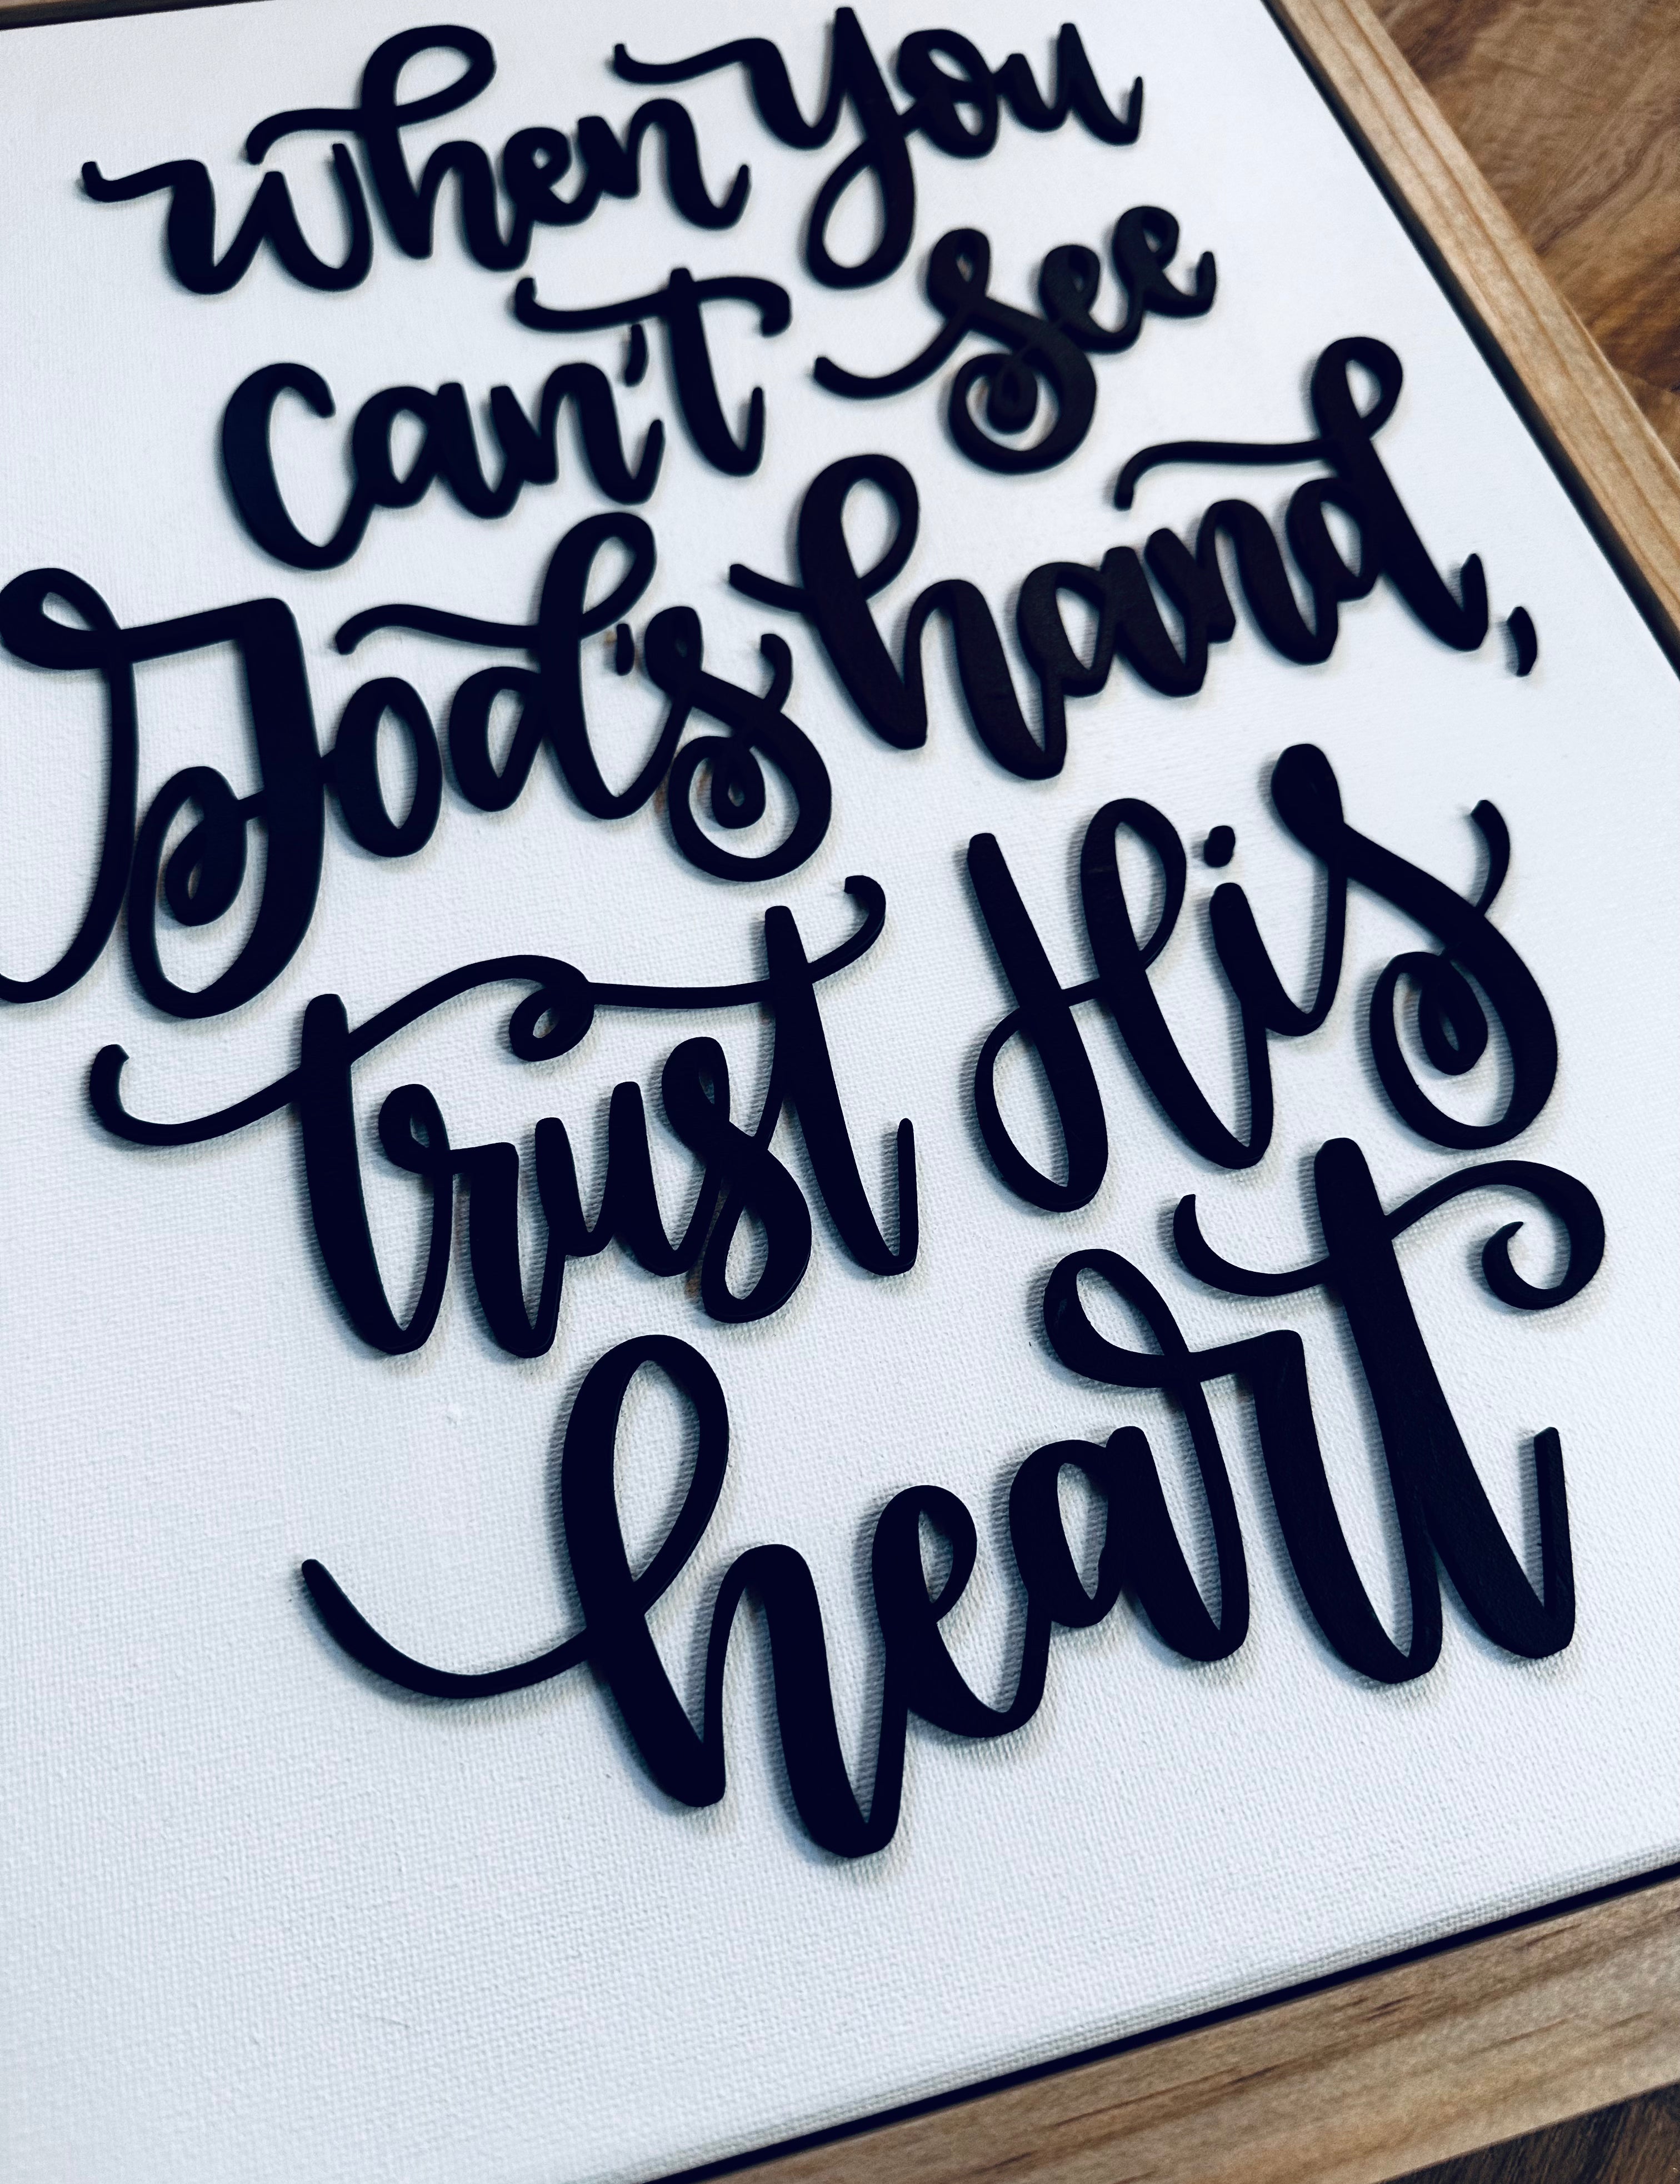 When You
can't see
God's hand,
trust His
heart